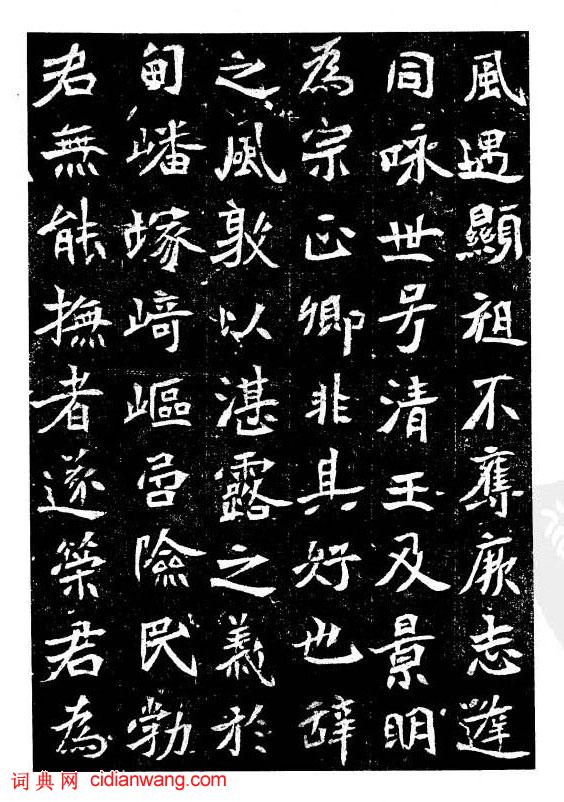 風遇顯祖不奪厥志
同咏世号清王及景明
為宗正卿非其好也辝
之風敦以湛露之義於
甸嶓塚崎嶇嵒險民勃
君無能撫者遂策君為
词典网 cidianwang.com